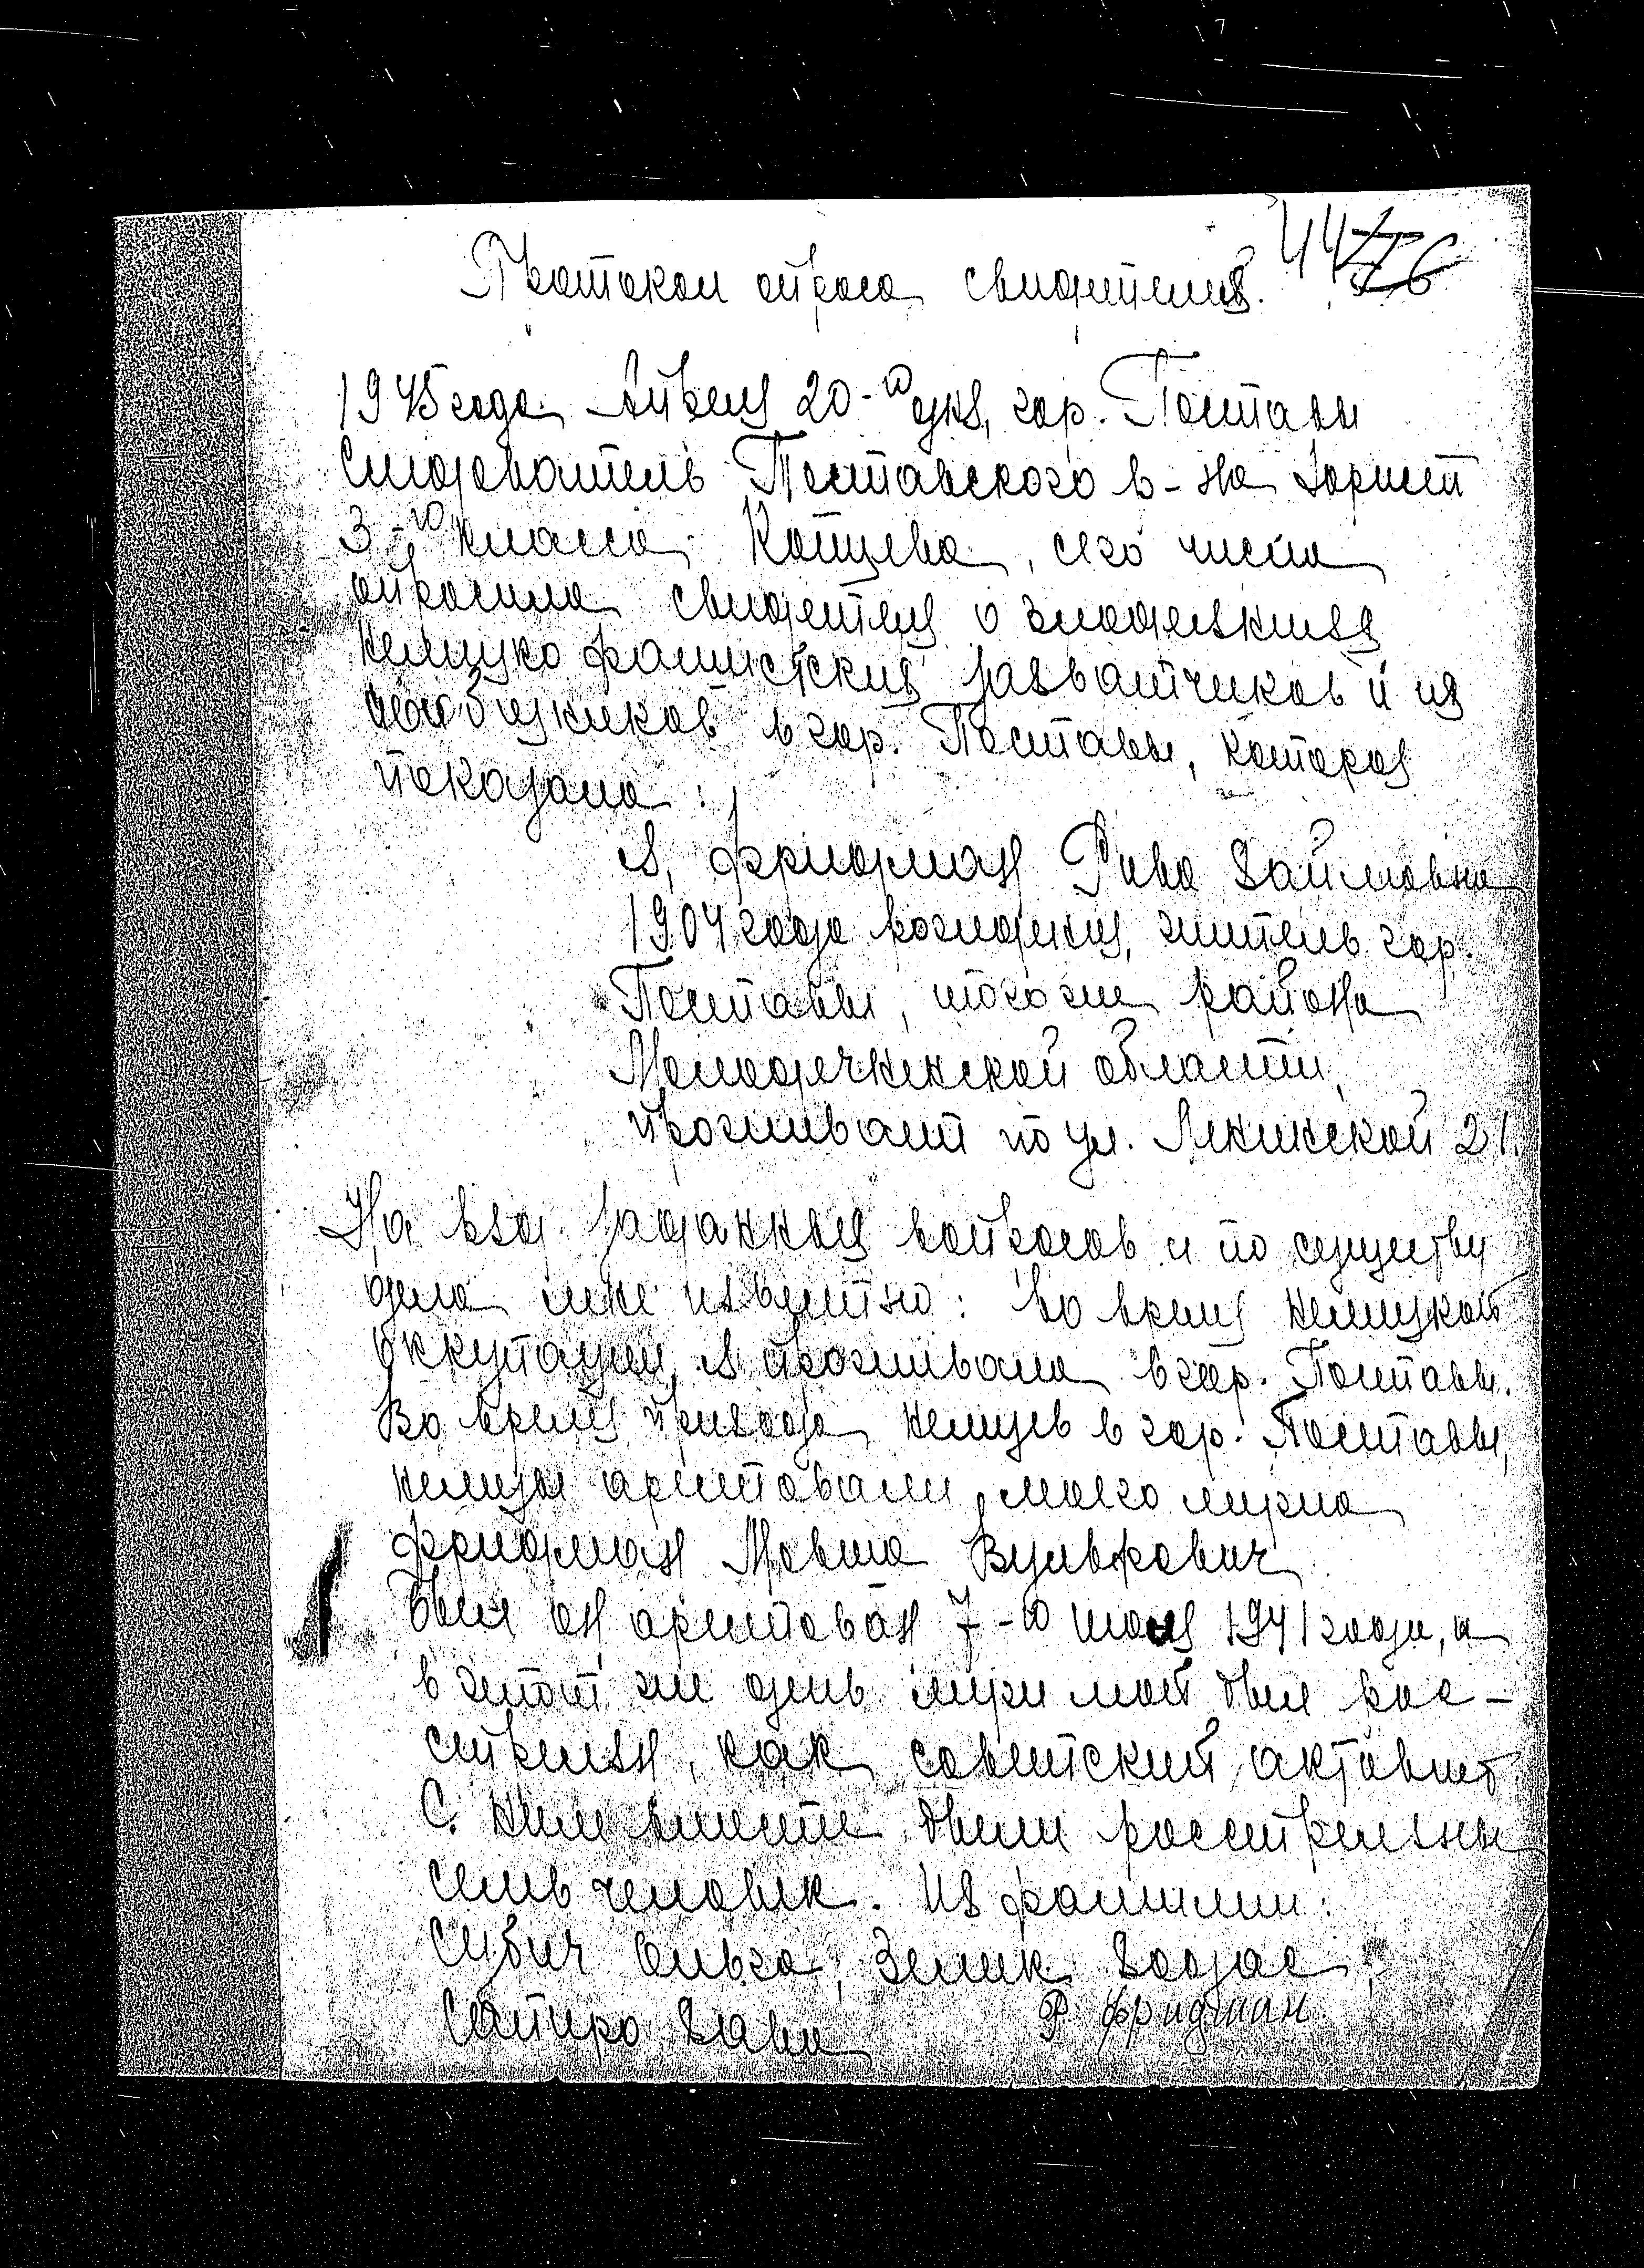 44 76
Протокол опроса свидетеля.
1945 года Апреля 20-го дня, гор. Поставы
Следователь Поставского р-на юрист
3-го класса Копцева, сего числа
опросила свидетеля о злодеяниях
немецко фашистских захватчиков и их
пособников в гор. Поставы, которая
показала:
Я, Фридман Рива Хаймовна
1904 года рождения, житель гор.
Поставы, того же района
Молодечненской области,
проживает по ул. Ленинской 21.
На ряд заданных вопросов и по существу
дела мне известно: во время немецкой
оккупации я проживала в гор. Поставы.
Во время прихода немцев в гор. Поставы,
немцы арестовали моего мужа
Фридман Мовша Вульфович
Был он арестован 7-го июля 1941 года, и
в этот же день муж мой был рас-
стрелян, как советский активист
С ним вместе были расстреляны
семь человек. Из фамилии:
Ольга, Зелик
Сапиро Хава
Р. Фридман